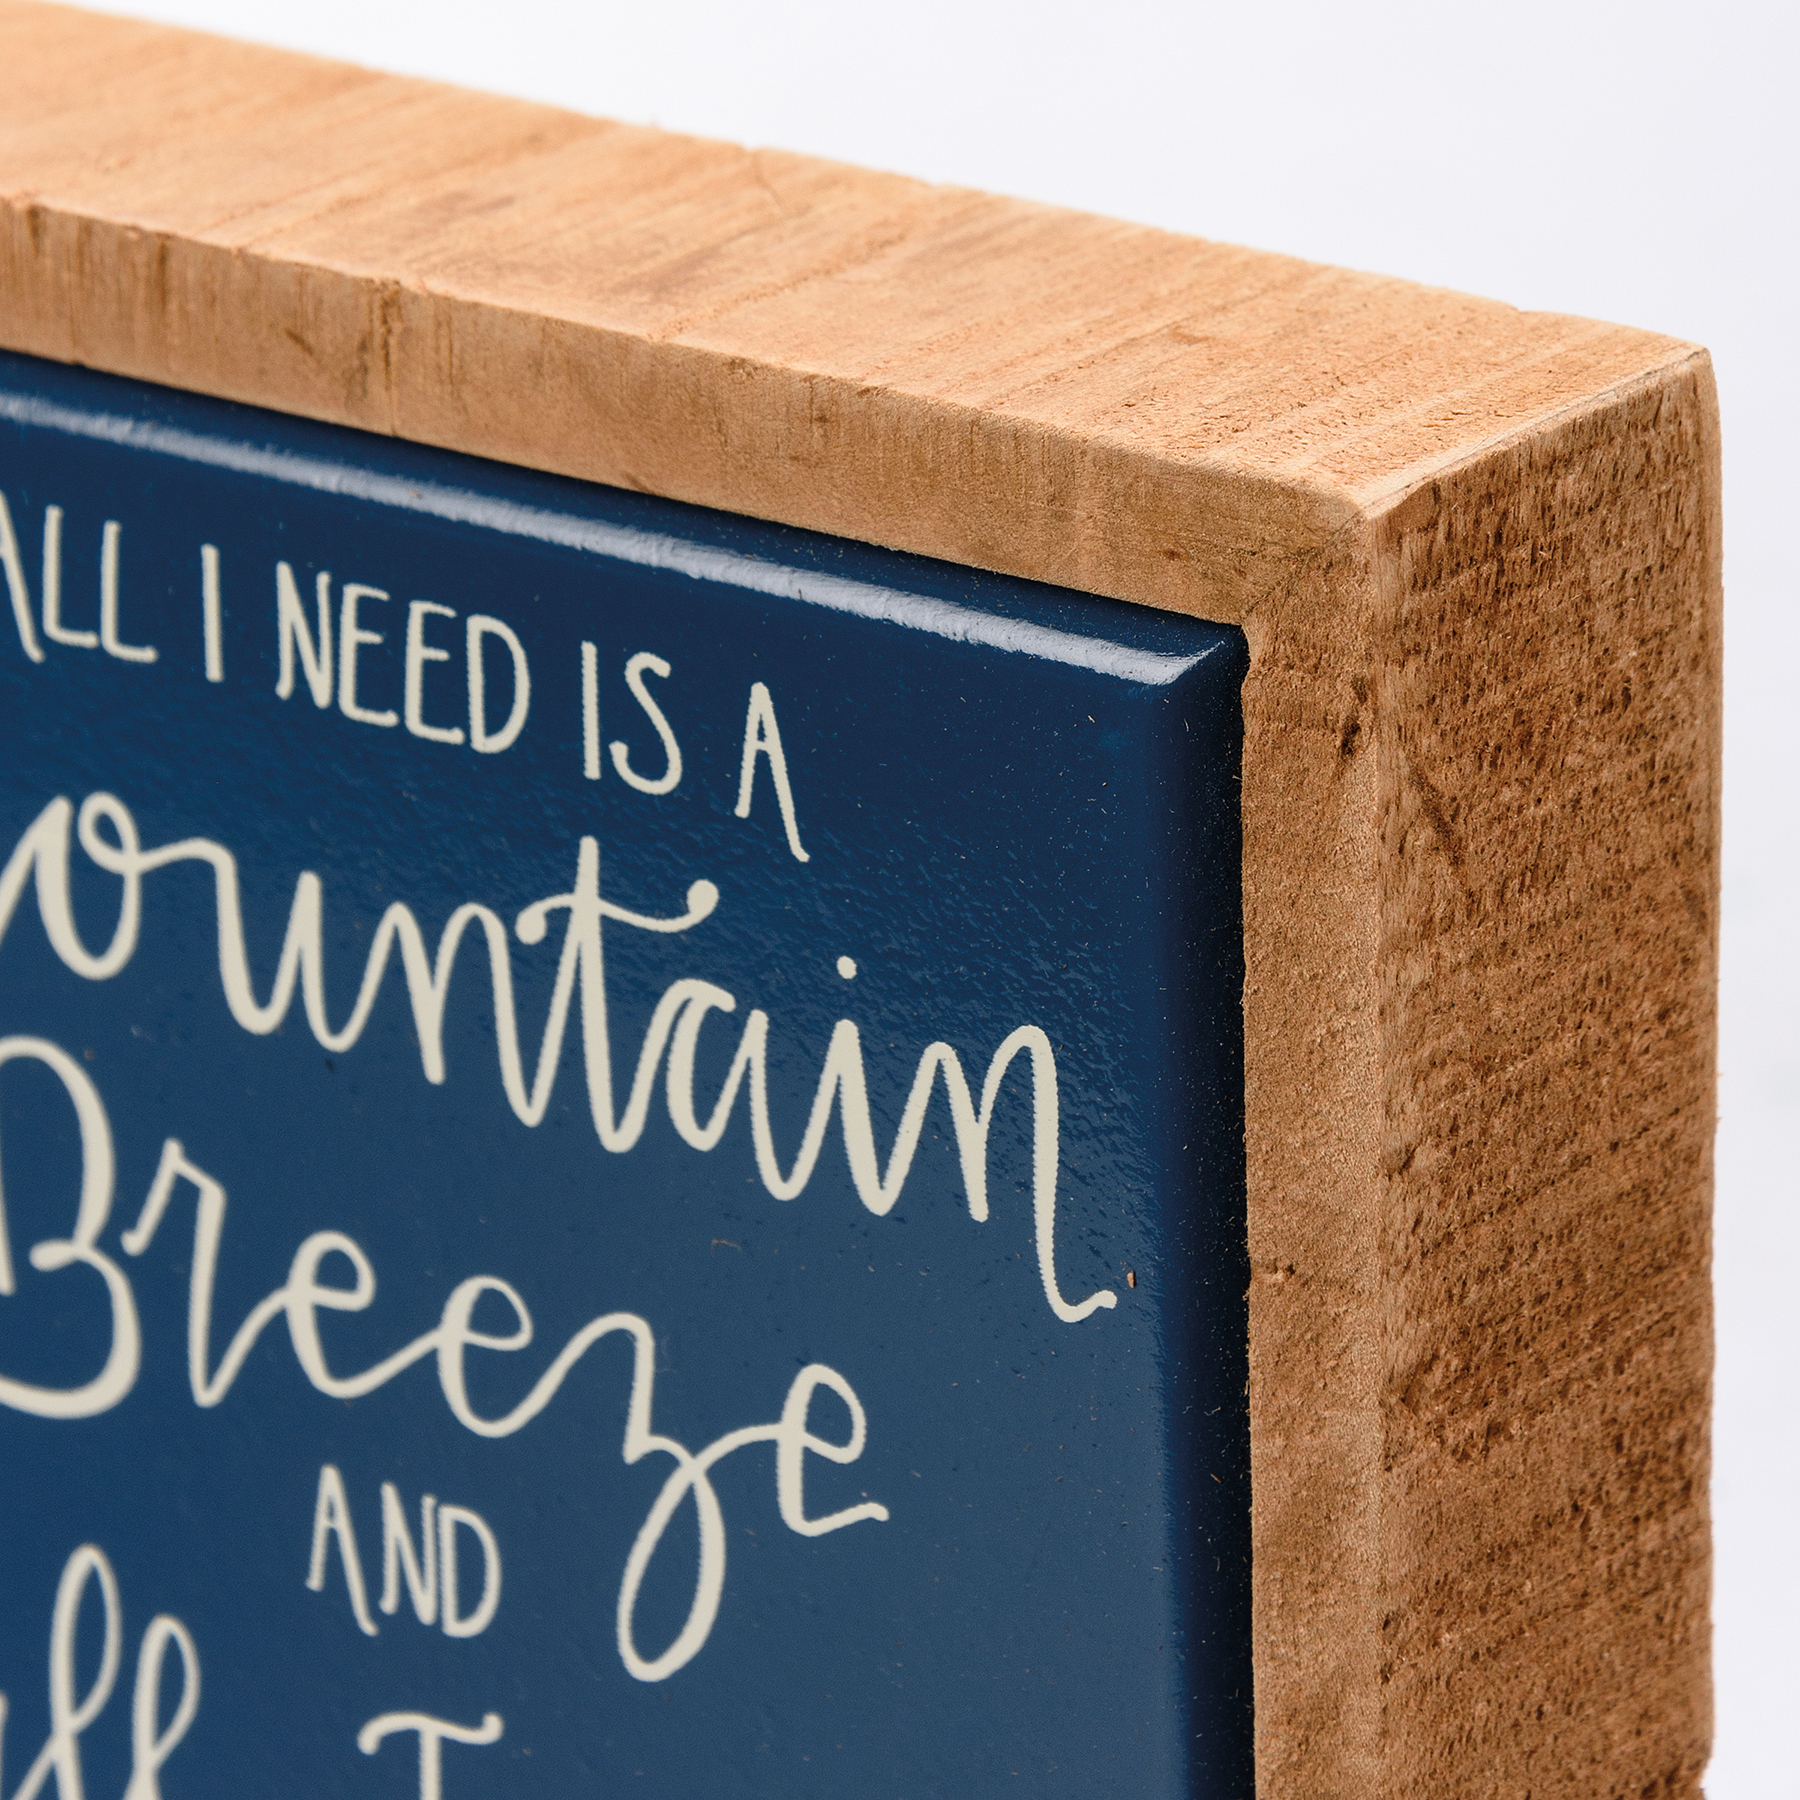 ALL I NEED IS A
ountain
Breeze
AND